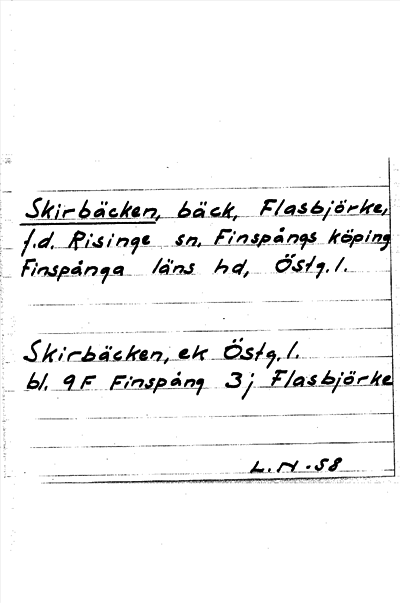 Skirbäcken, bäck, Flasbjörke,
f.d. Risinge sn, Finspångs köping
Finspånga läns hd, Östg.l.
Skirbäcken, ek Östg.l.
bl. 9F Finspång 3j Flasbjörke
L.N.-58